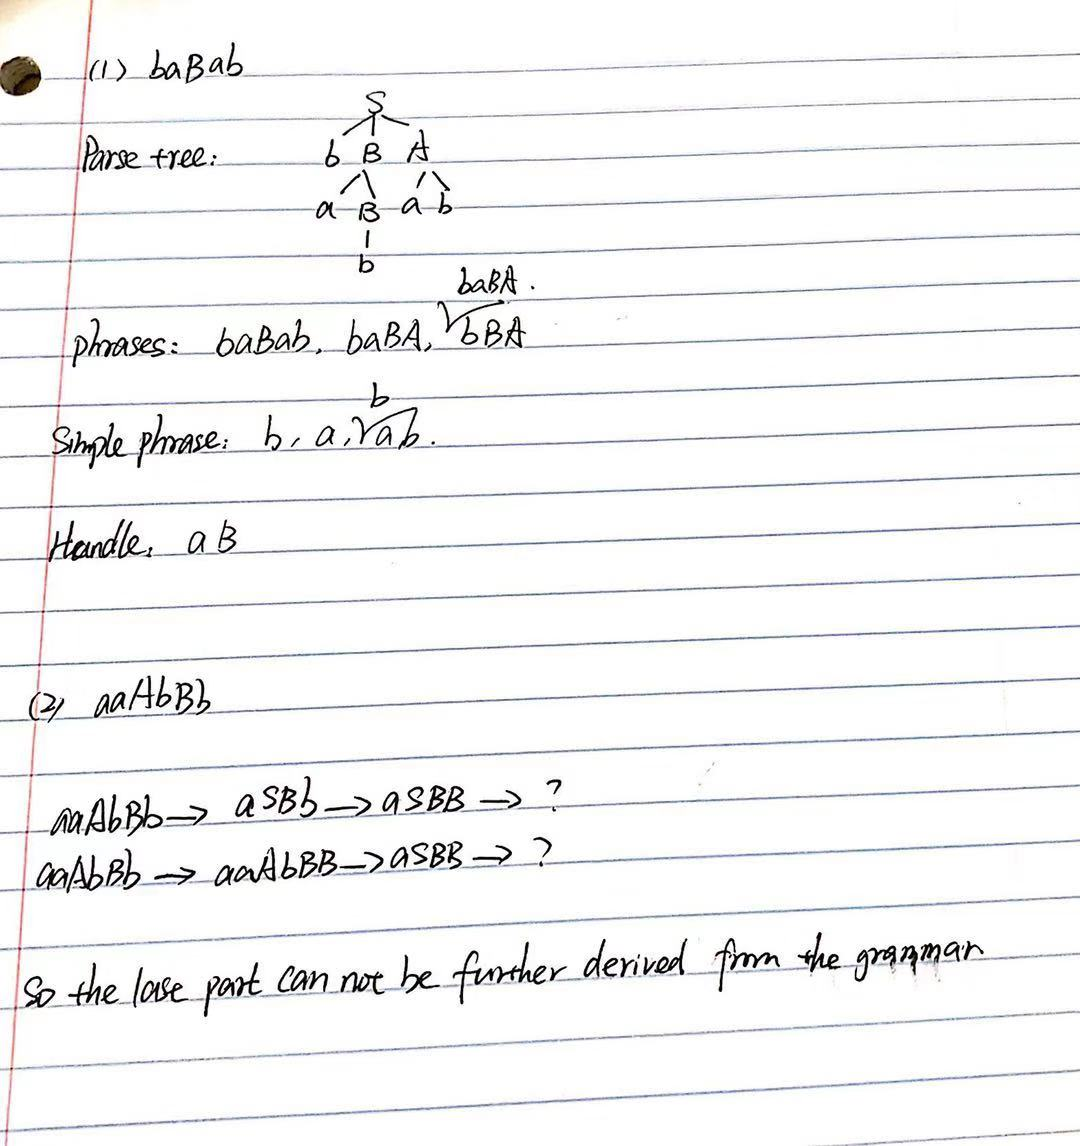 (1) baBab
S
Parse tree: b B A
a B a b
b
baBA.
phrases: baBab, baBA, bBA
b
Simple phrase: b, a, ab.
Handle: aB
(2) aaAbBb
aaAbBb → aSBb → aSBB → ?
aaAbBb → aaAbBB → aSBB → ?
So the lase part can not be further derived from the grammar